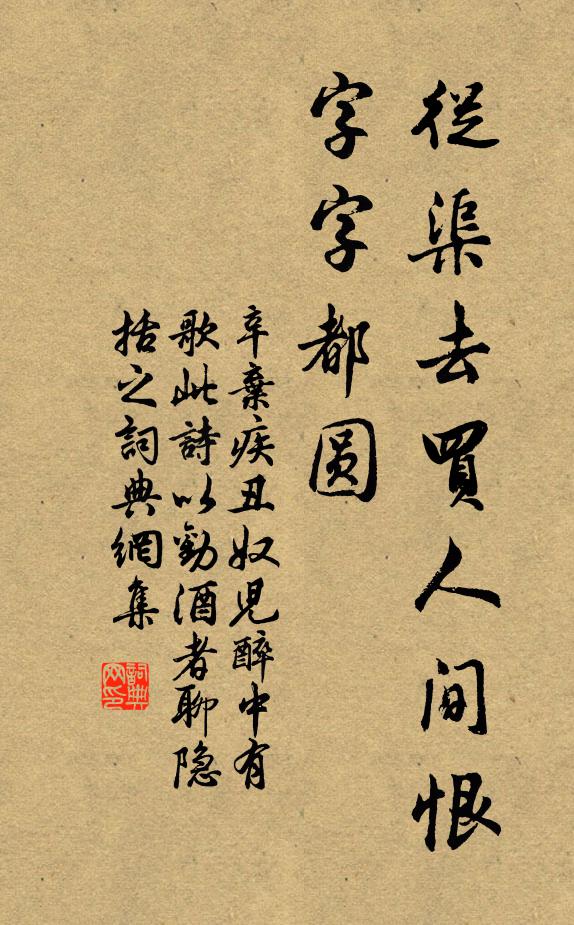 從渠去買人间恨
字字都圆
辛棄疾丑奴児醉中有
歌此詩以勸酒者聊隐
括之詞典網集
詞典
网印